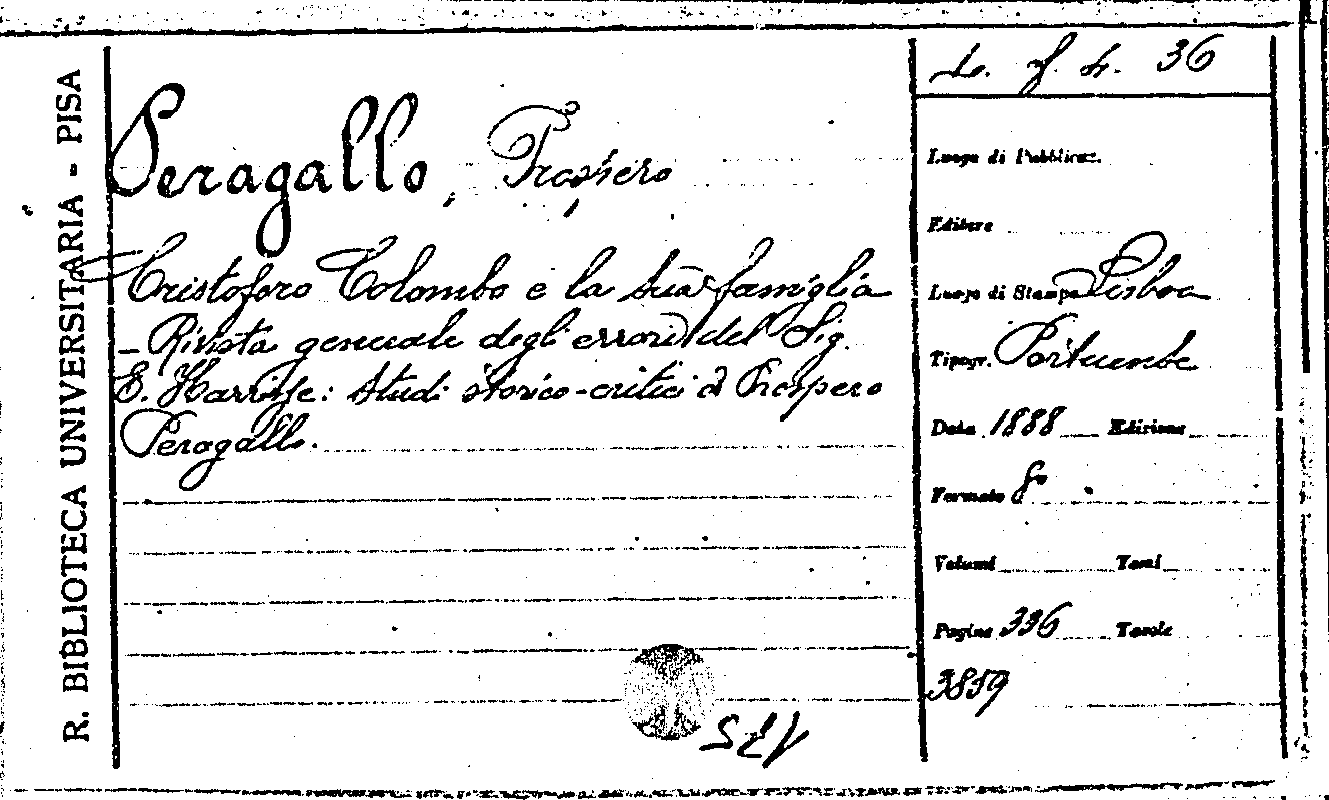 R. BIBLIOTECA UNIVERSITARIA - PISA
L. f. 4. 36
Peragallo, Prospero
Cristoforo Colombo e la sua famiglia
- Rivista generale degli errori del Sig.
E. Harrisse: studi storico-critici di Prospero
Peragallo.
Luogo di Pubblicaz.
Editore
Luogo di Stampa Lisboa
Tipogr. Portuense
Data 1888 Edizione
Formato 8º
Volumi Tomi
Pagine 336 Tavole
3859